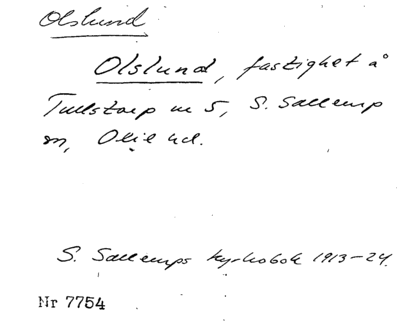 Olslund
Olslund, fastighet å
Tullstorp nr 5, S. Sallerup
sn, Oxie hd.
S. Sallerups kyrkobok 1913-24.
Nr 7754